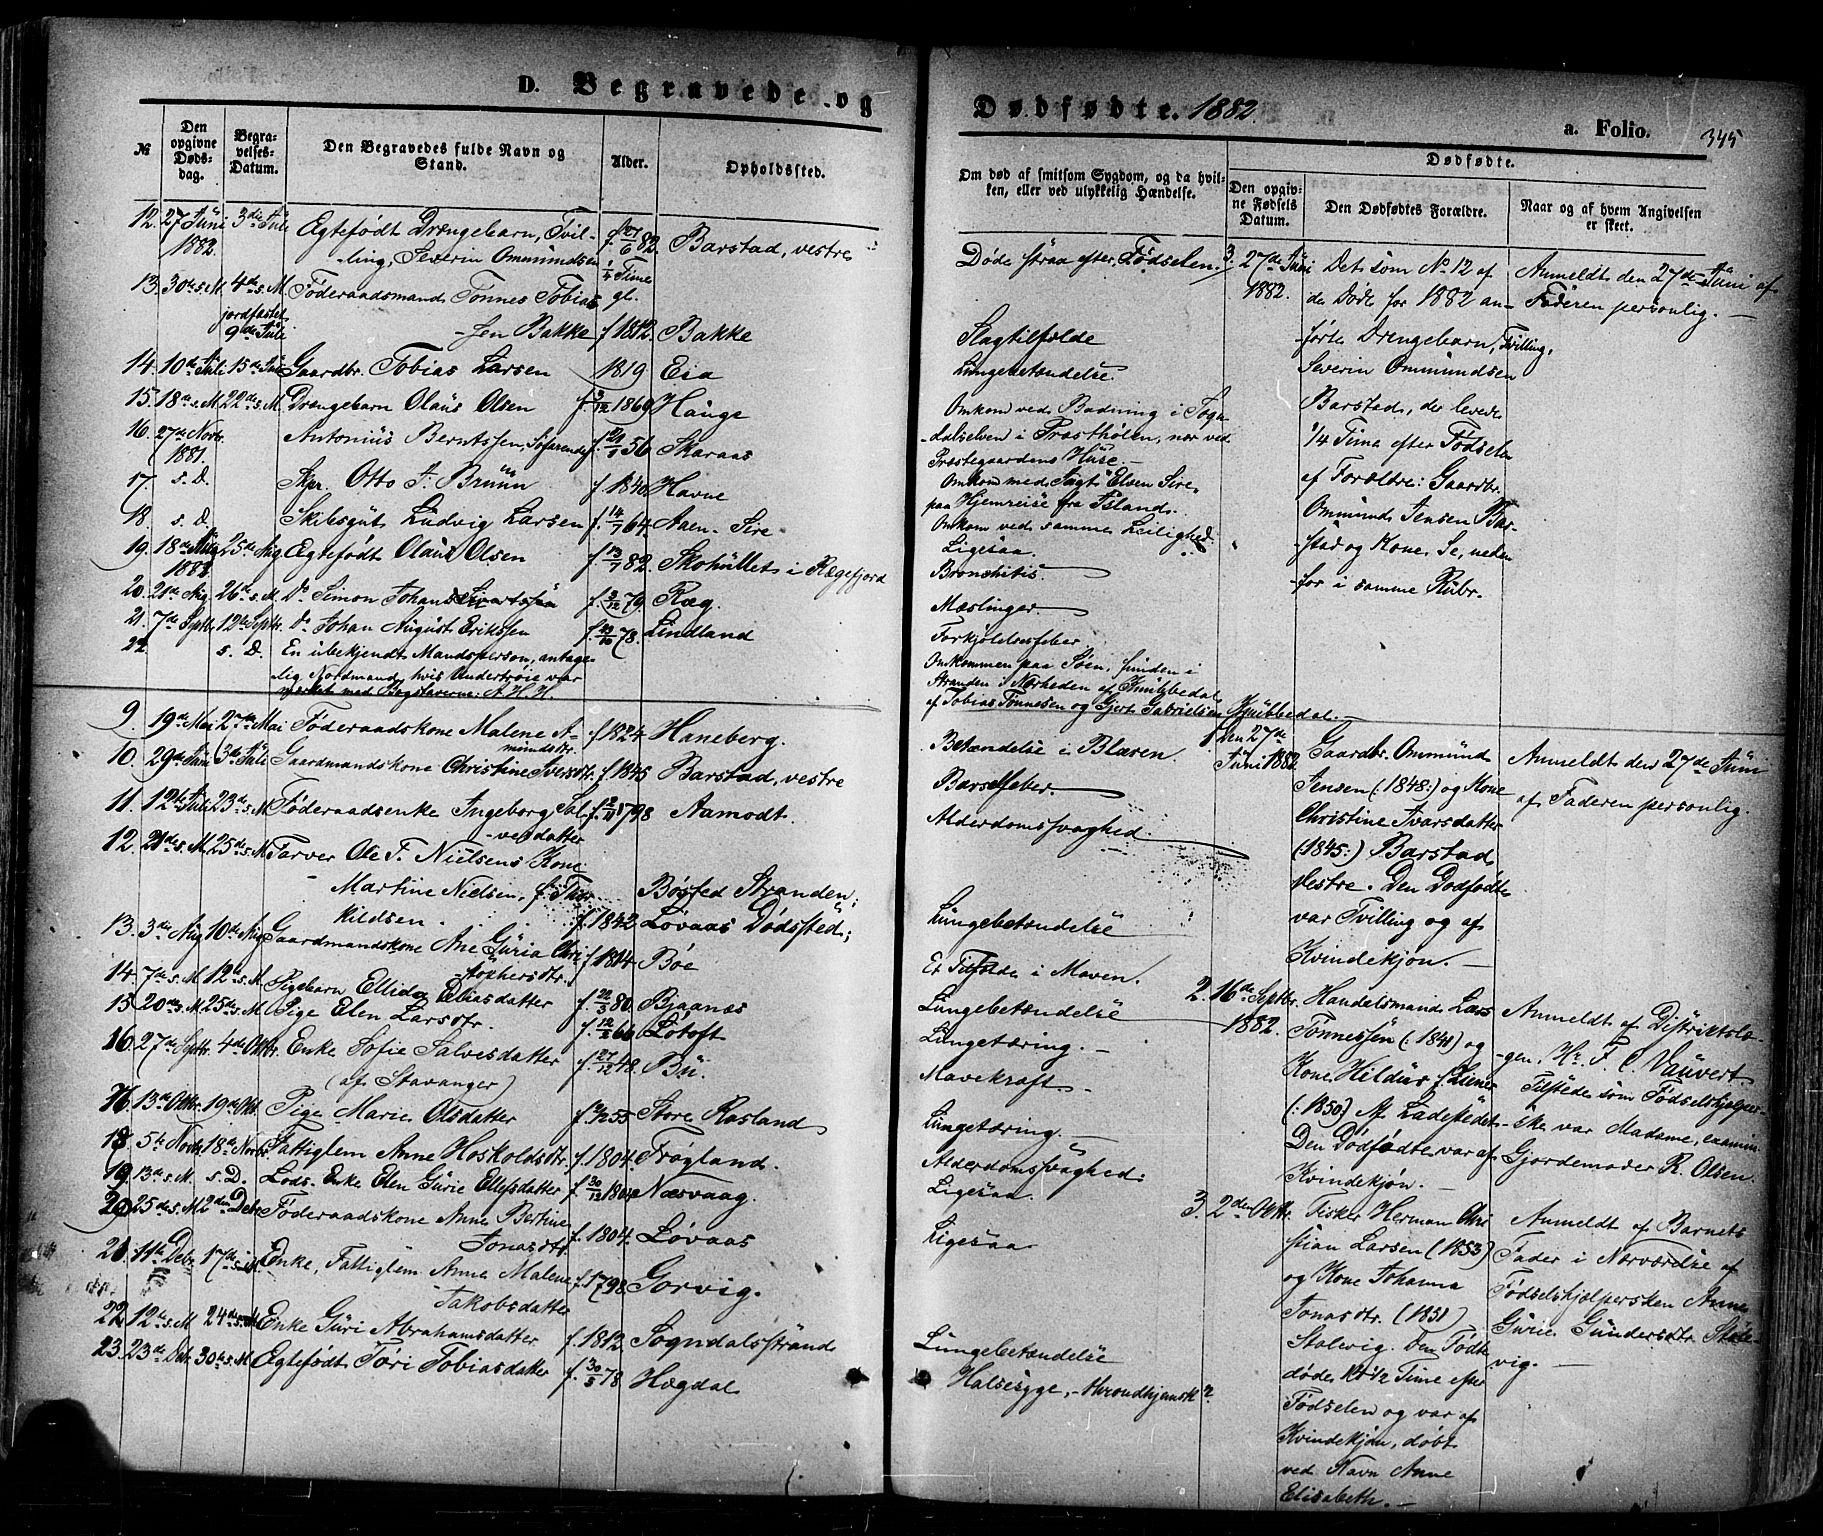 D. Begravede og
№
Den opgivne Døds-dag.
Begra-velses-Datum.
Den Begravedes fulde Navn og Stand.
Alder.
Opholdssted.
12. 27 Juni 1882. 3die Juli Ægtefødt Drængebarn, Tvil- f. 27/6 82. Barstad, vestre
ling, Severin Ommundsen 1/4 Time gl.
13. 30te s. M. 4de s. M Føderaadsmand Tønnes Tobias-
jordfæstet 9de Juli
sen Bakke f 1812. Bakke
14. 10de Juli 15de Juli Gaardbr. Tobias Larsen 1819 Eia
15. 18de s. M. 22de s. M. Drengebarn Olaus Olsen f. 1869 Hauge
16. 27de Novbr. 1881. Antonius Berntssen, Søfarende f. 56 Skaraas
17. s. D. Skpr. Otto J. Bruun f 1840. Havne
18. s. D. Skibsgut Ludvig Larsen f. 14/7 64. Aaen-Sire
19. 18de Aug 1882 25de Aug Ægtefødt Olaus Olsen f. 13/7 82. Skohullet i Rægefjord
20. 21de Aug 26de s. M. Do Simon Johan Sivertssen f. 3/12 79. Ræg.
21. 7de Septbr 12de Septbr. do Johan August Erikssen f. 78. Lindland
22. s. D. En ubekjendt Mandsperson, antage-
lig Nordmand, hvis Undertrøie var
mærket med Bogstaverne A. H. H.
9. 19de Mai 27de Mai Føderaadskone Malene A- f 1824 Haneberg.
mundsdtr.
10. 29de Juni 3die Juli Gaardmandskone Christine Iversdtr. f. 1845 Barstad, vestre
11. 12te Juli 23de s. M. Føderaadsenke Ingeborg Sal- f. 1798 Aamodt.
vesdatter
12. 21de s. M. 25de s. M. Farver Ole F. Nielsens Kone
Martine Nielsen, f. Thor- Bosted Stranden;
kildsen. f. 1842. Løvaas Dødsted;
13. 3de Aug 10de Aug Gaardmandskone Ane Guria Chri- f 1814 Bøe
stophersdtr.
14. 7de s. M. 12te s. M. Pigebarn Ellida Eliasdatter f. 22/3 80. Bjaanæs
15. 20de s. M. 25de s. M. Pige Elen Larsdtr. f. 66 Lotoft
16. 27de Septbr. 4de Oktbr. Enke Sofie Salvesdatter f. 27/12 48. Bu.
(af Stavanger)
13de Oktbr. 19de Okt. Pige Marie Olsdatter f. 55 Store Rasland
18. 5te Novbr. 18de Novbr. Fattiglem Anne Hoskoldsdtr. f. 1804. Frøgland.
19. 13de s. M. s. D. Lods-Enke Elen Gurie Ellefsdatter f. 30/12 1804. Næsvaag.
20. 25de s. M. 2den Debr. Føderaadskone Anne Bertine f. 1804. Løvaas
Jonasdtr.
21. 11te Debr. 17de s. M. Enke, Fattiglem Anna Malene f. 1798. Gorvig.
Jakobsdatter
22. 12te s. M. 24de s. M. Enke Guri Abrahamsdatter f. 1812. Sogndalsstrand
23. 23de Dbr. 30te s. M. Ægtefødt Tøri Tobiasdatter f. 30/3 78 Hægdal
Dødfødte. 1882.
a. Folio. 345
Om død af smitsom Sygdom, og da hvil-ken, eller ved ulykkelig Hændelse.
Dødfødte.
Den opgiv-ne Fødsels Datum.
Den Dødfødtes Forældre.
Naar og af hvem Angivelsen er skeet.
Døde straa efter Fødselen.
Slagtilfælde
Lungebetændelse.
Omkom ved Badning i Sogn-
dalselven i Præsthølen, nær ved
Præstegaardens Huse.
Omkom med Jagt "Elsen" Sire,
paa Hjemreise fra Island.
Omkom ved samme Leilighed
Ligesaa.
Bronchitis.
Mæslinger.
Forkjølelsesfeber.
Omkommen paa Søen, funden i
Stranden i Nærheden af Knubbedal
af Tobias Tønnesen og Gjert Gabrielsen Knubbedal.
Betændelse i Blæren.
Barselfeber.
Alderdomssvaghed.
Lungebetændelse
Et Tilfælde i Maven.
Lungebetændelse
Lungetæring.
Mavekræft
Lungetæring.
Alderdomssvaghed.
Ligesaa
Ligesaa
Lungebetændelse
Halsesyge, throndhjemsk?
3. 27de Juni 1882. Det som No. 12 af
de Døde for 1882 an-
førte Drengebarn, Tvilling,
Severin Ommundsen
Barstad, der levede
1/4 Time efter Fødselen
af Forældre: Gaardbr.
Ommund Jensen Bar-
stad og Kone. Se, neden-
for i samme Rubr.
Anmeldt den 27de Juni af
Faderen personlig.
1 Den 27de Juni 1882 Gaardbr. Ommund
Jensen (:1848:) og Kone
Christine Ivarsdatter
(:1845:) Barstad
Vestre. Den Dødfødte
var Tvilling og af
Kvindekjøn.
Anmeldt den 27de Juni
af Faderen personlig.
2. 16de Septbr. 1882. Handelsmand Lars
Tønnessen (:1841) og
Kone Hildus f. Liene
(:1850) Aa Ladestedet
Den Dødfødte var af
Kvindekjøn.
Anmeldt af Distriktslæ-
gen, Hr. F. C Vauvert
Tilstede som Fødselshjælper-
ske var Madame, examin.
Gjordemoder R. Olsen.
3. 2den Oktbr. Fisker Herman Chri
stian Larsen (1853)
og Kone Johanna
Jonasdtr. (1851)
Stølevig. Den Født
døde Kl 1/2 Time efter
Fødselen og var af
Kvindekjøn, døbt
ved Navn Anne
Elisabeth.
Anmeldt af Barnets
Fader i Nærværelse af
Fødselshjælpersken Anne
Gurie Gundersdtr. Støle-
vig.